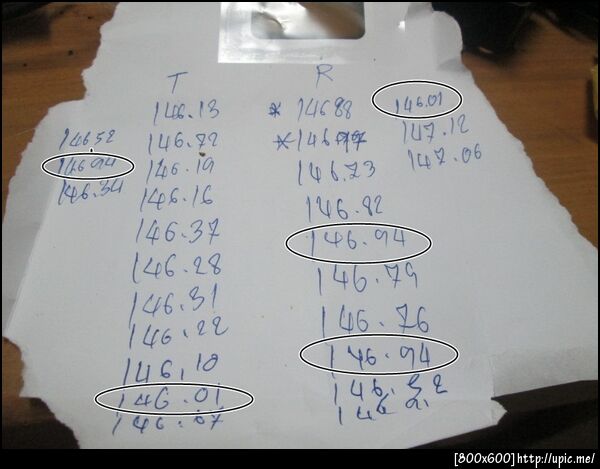 T R
146.13 * 14688 146.01
14652 146.72 * 147.12
14694 146.19 146.73 147.06
146.34 146.16 146.82
146.37 146.94
146.28 146.79
146.31 146.76
146.22 146.94
146.10
146.01
146.07
[800x600]http://upic.me/